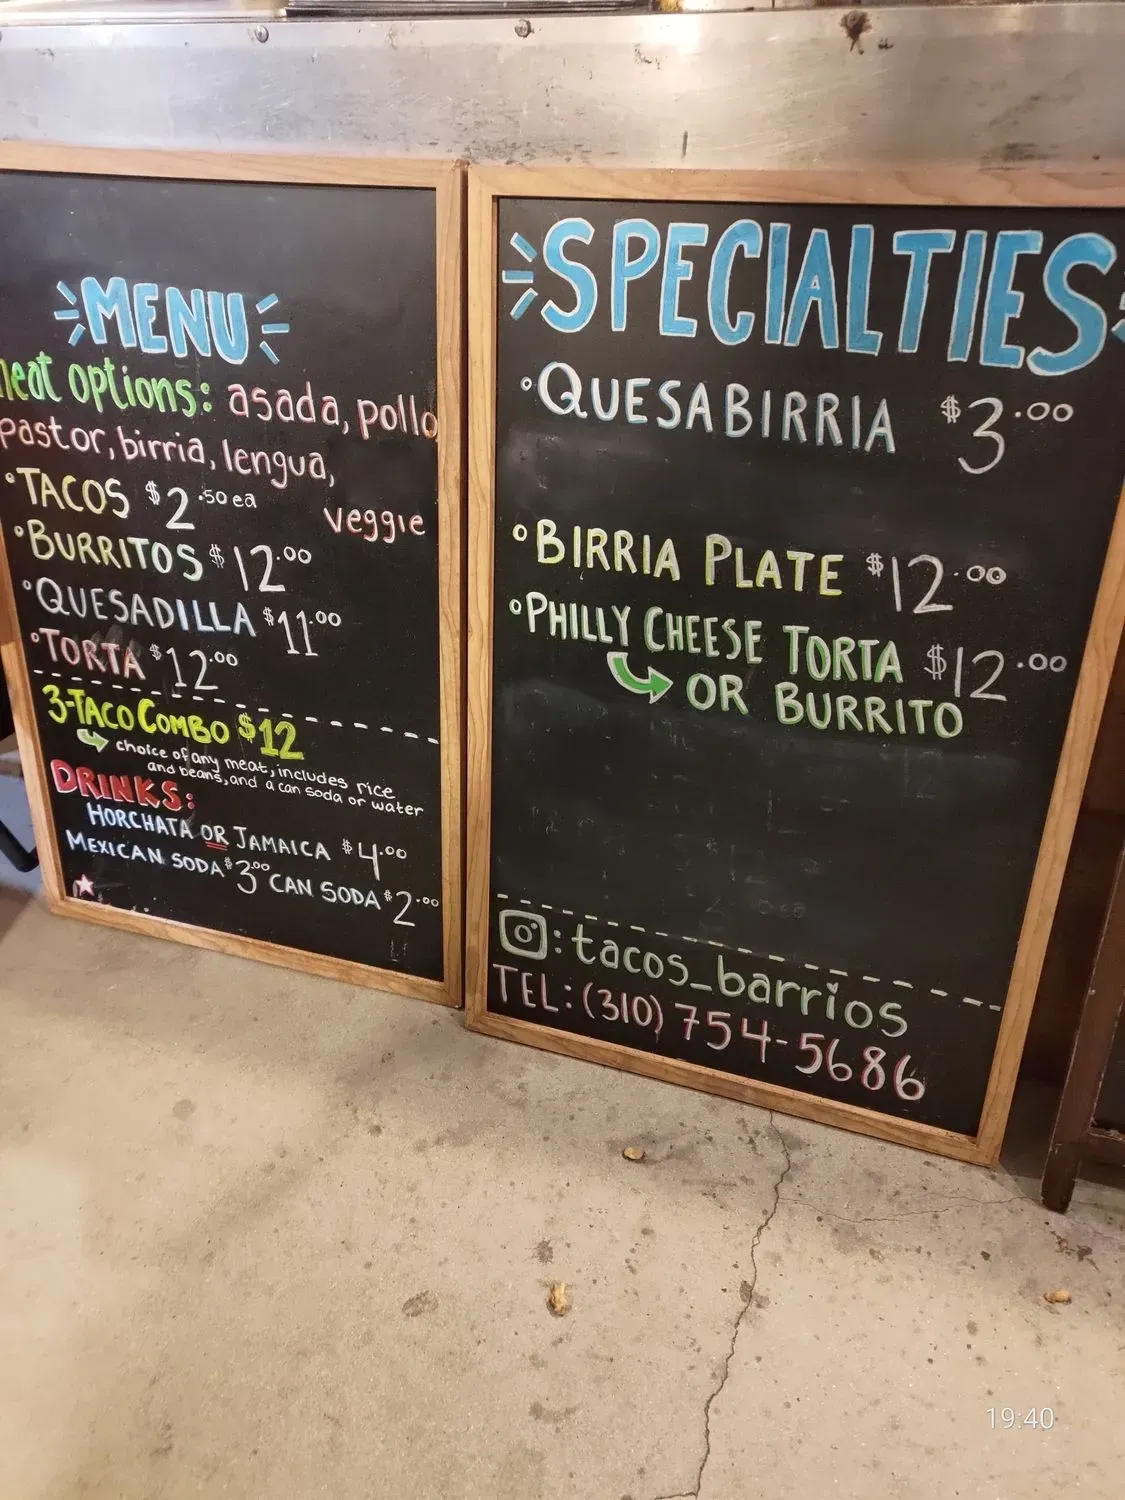 MENU
meat options: asada, pollo
pastor, birria, lengua,
veggie
°TACOS $2.50 ea
°BURRITOS $12.00
°QUESADILLA $11.00
°TORTA $12.00
3-TACO COMBO $12
choice of any meat, includes rice
and beans, and a can soda or water
DRINKS:
HORCHATA OR JAMAICA $4.00
MEXICAN SODA $3.00 CAN SODA $2.00
SPECIALTIES
°QUESABIRRIA $3.00
°BIRRIA PLATE $12.00
°PHILLY CHEESE TORTA $12.00
OR BURRITO
: tacos_barrios
TEL: (310) 754-5686
19:40